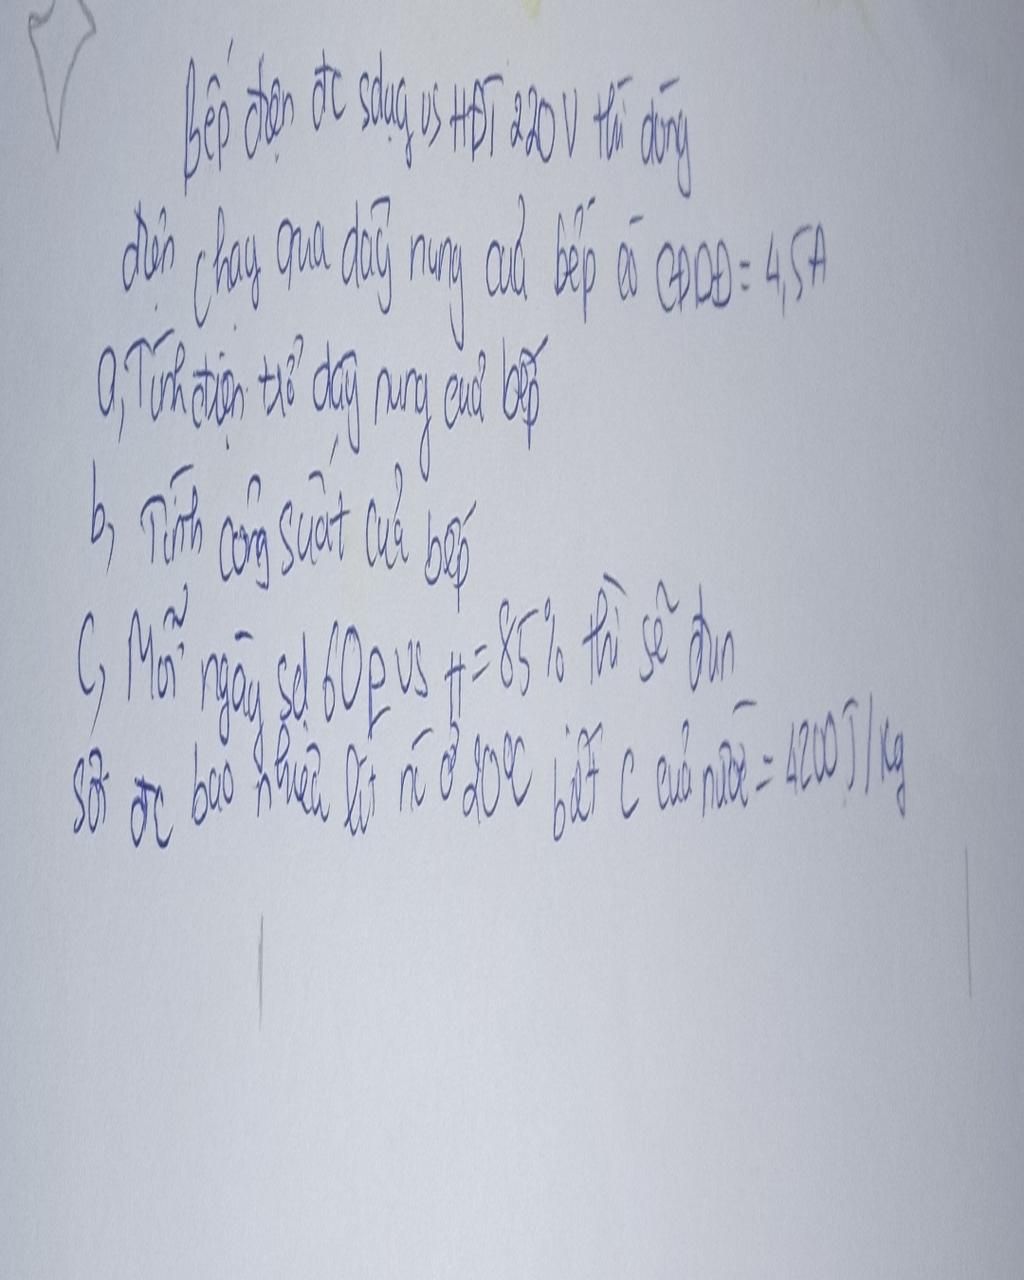 Bếp điện đc sdụg vs HĐT 220V thì dòng
điện chạy qua dây nung của bếp có CĐDĐ = 4,5A
a, Tính điện trở dây nung của bếp
b, Tính công suất của bếp
C, Mỗi ngày sd 60p vs H = 85% thì sẽ đun
sôi đc bao nhiêu lít nc ở 20°C biết C của nước = 4200J/kg